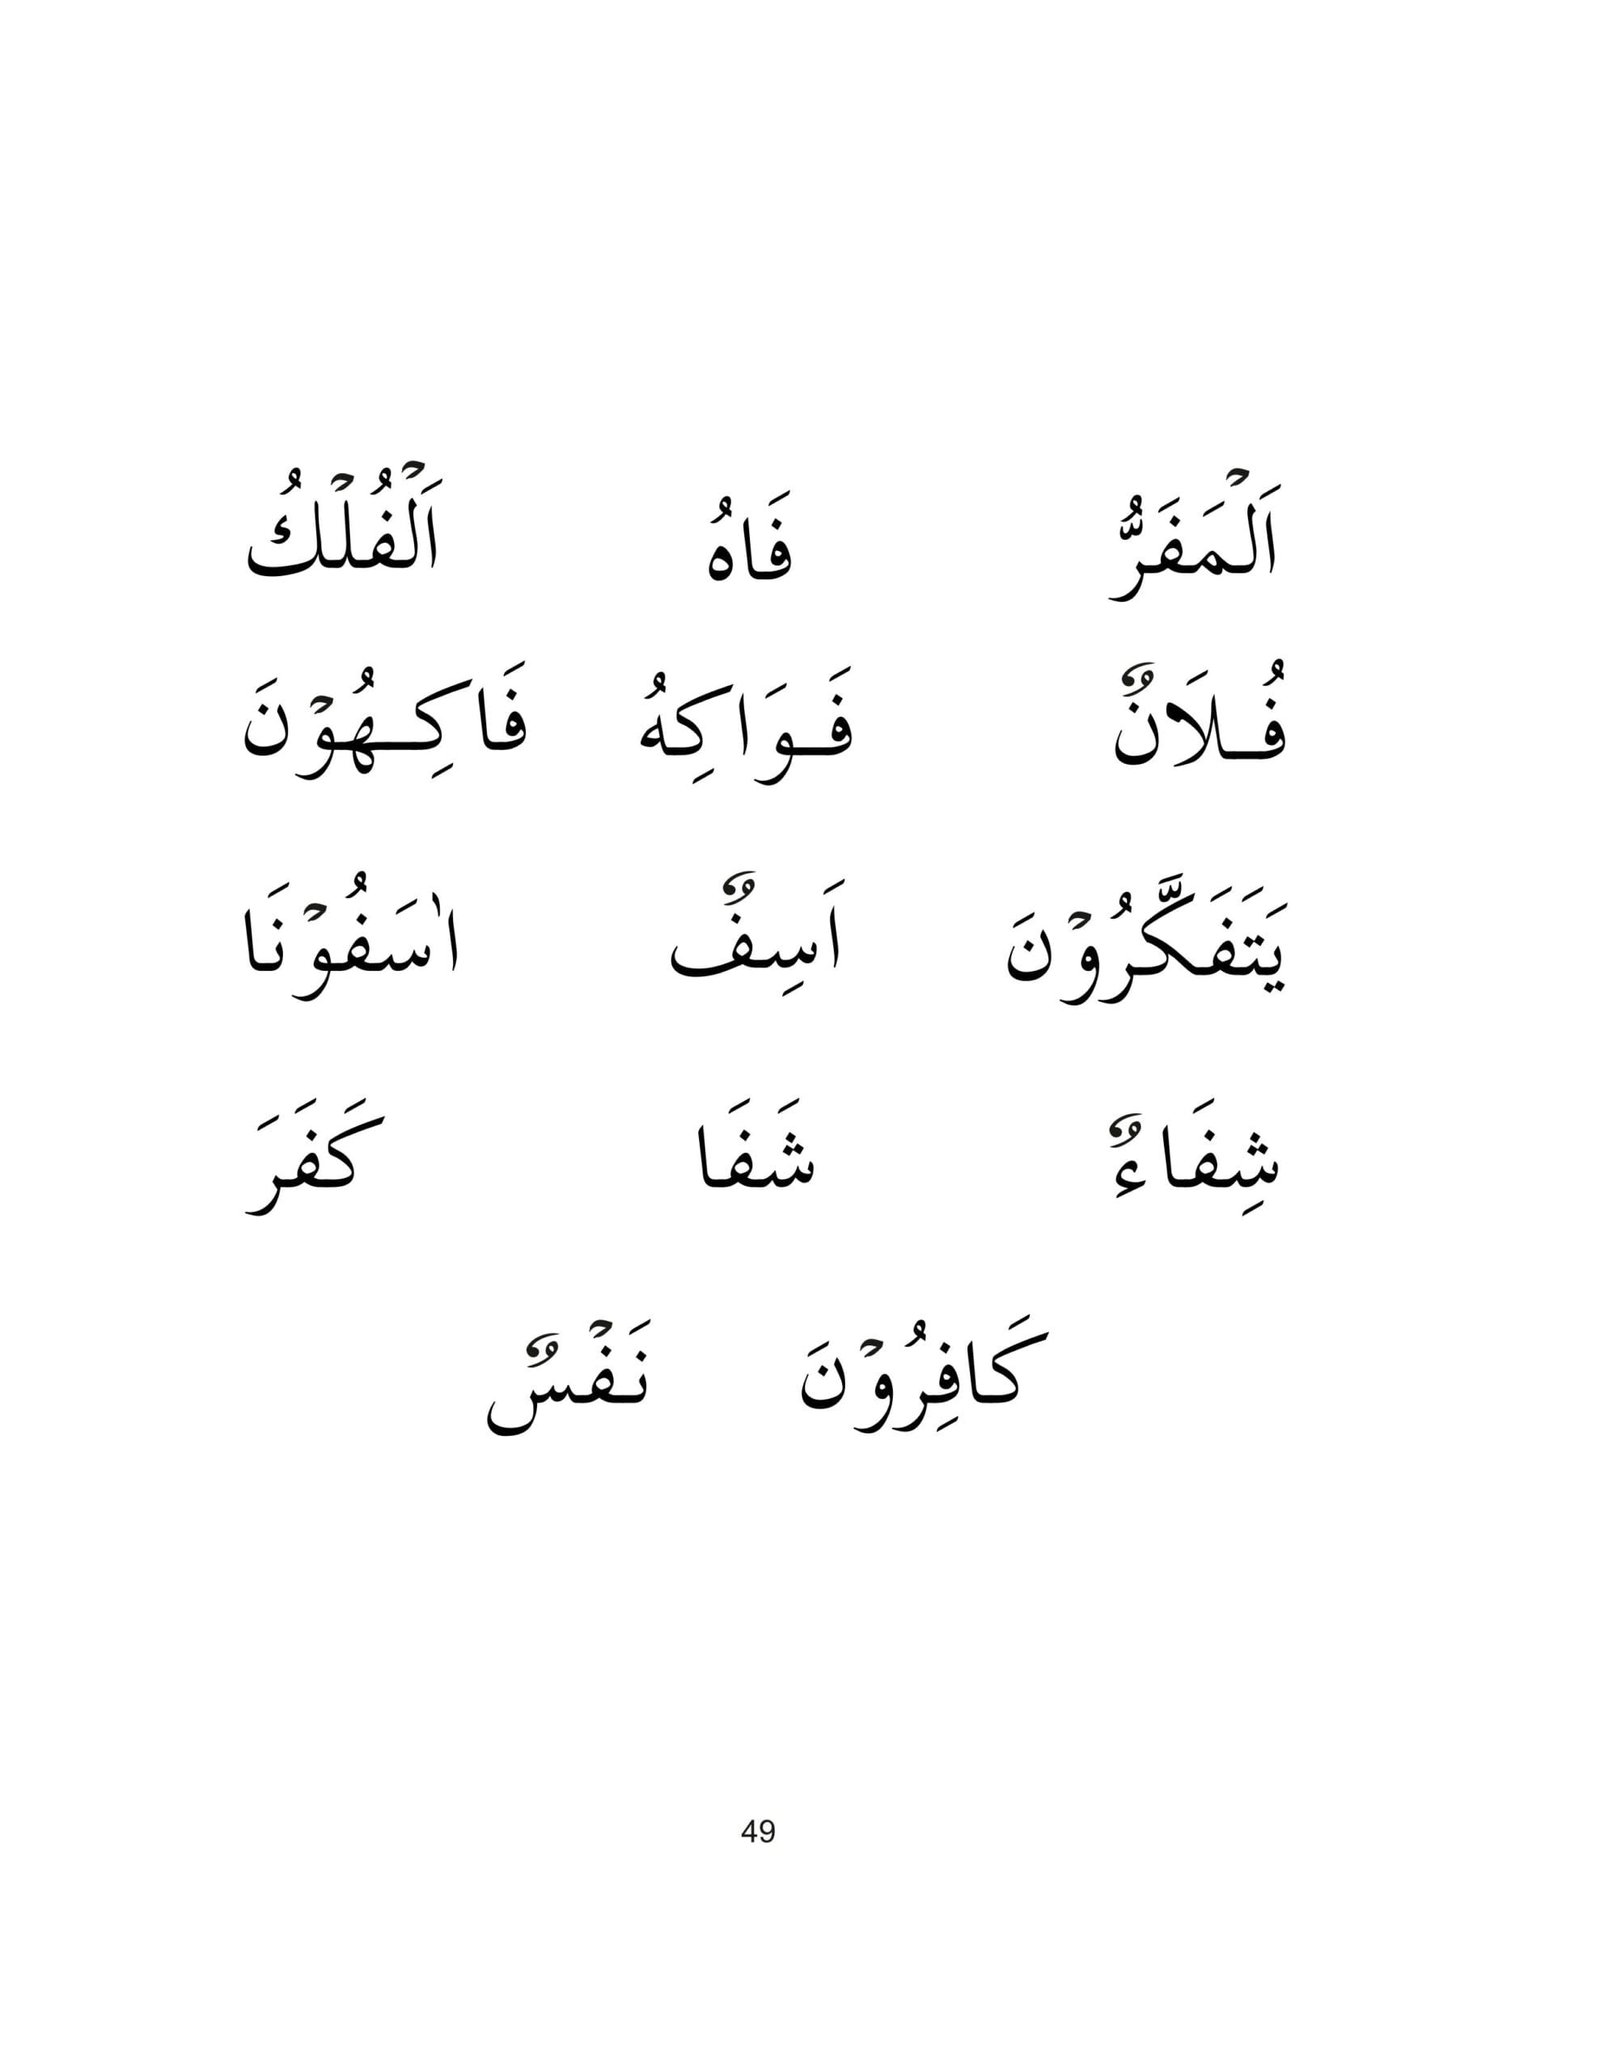 اَلْمَفَرُّ فَاهُ اَلْفُلْكُ
فُـلَانٌ فَـوَاكِهُ فَاكِـهُوْنَ
يَتَفَكَّرُوْنَ اَسِفٌ اٰسَفُوْنَا
شِفَاءٌ شَفَا كَفَرَ
كَافِرُوْنَ نَفْسٌ
49